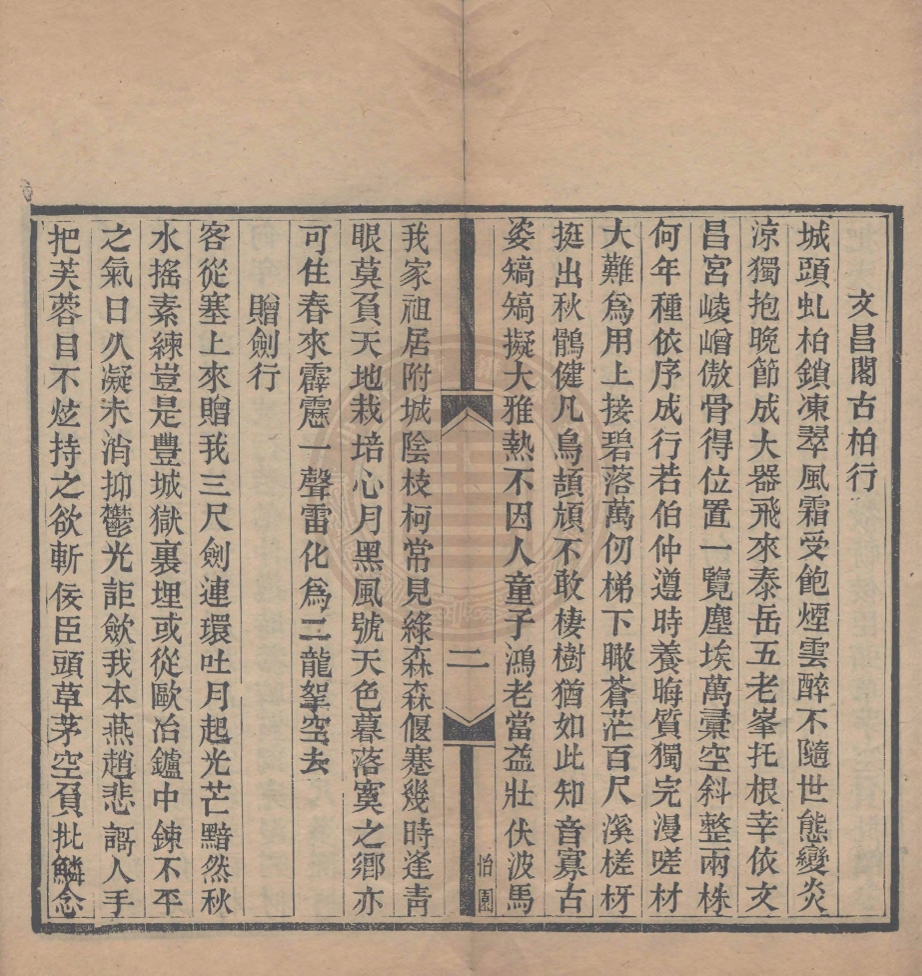 文昌閣古柏行
城頭虬柏鎖凍翠風霜受飽煙雲醉不隨世態變炎
涼獨抱晚節成大器飛來泰岳五老峯托根幸依文
昌宮崚嶒傲骨得位置一覽塵埃萬彚空斜整兩株
何年種依序成行若伯仲遵時養晦質獨完漫嗟材
大難爲用上接碧落萬仞梯下瞰蒼茫百尺溪槎枒
挺出秋鶻健凡鳥頡頏不敢棲樹猶如此知音寡古
姿㷨㷨擬大雅熱不因人童子鴻老當益壯伏波馬
二
怡園
我家祖居附城陰枝柯常見綠森森偃蹇幾時逢靑
眼莫負天地栽培心月黑風號天色暮落寞之鄕亦
可住春來霹靂一聲雷化爲二龍挐空去
贈劍行
客從塞上來贈我三尺劍連環吐月起光芒黯然秋
水搖素練豈是豐城獄裏埋或從歐冶鑪中鍊不平
之氣日久凝未消抑鬱光詎歛我本燕趙悲謌人手
把芙蓉目不炫持之欲斬佞臣頭草茅空負批鱗念